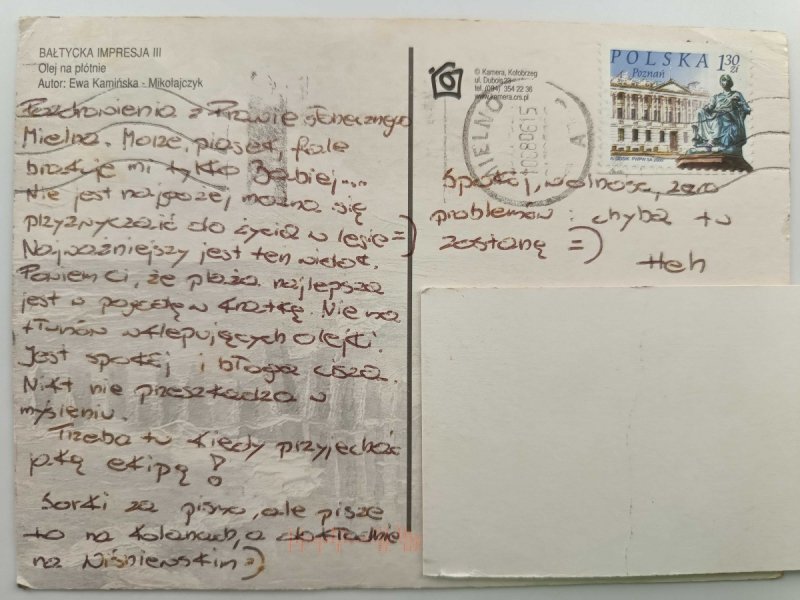 BAŁTYCKA IMPRESJA III
Olej na płótnie
Autor: Ewa Kamińska - Mikołajczyk
Pozdrowienia z Prawie słonecznego
Mielna. Morze, piasek, fale
brakuje mi tylko Babiej....
Nie jest najgorzej można się
przyzwyczaić do życia w lesie =)
Najważniejszy jest ten widok.
Powiem Ci, że plaża najlepsza
jest w pogodę w kratkę. Nie ma
tłumów wklepujących olejki.
Jest spokój i błoga cisza.
Nikt nie przeszkadza w
myśleniu.
Trzeba tu kiedy przyjechać
jaką ekipą!
Sorki za pismo, ale pisze
to na kolanach, a dokładnie
na Wiśniewskim =)
© Kamera, Kołobrzeg
ul. Dubois 23
tel. (094) 354 22 36
www.kamera.crs.pl
MIELNO
POLSKA 130
zł
Poznań
Spokój, wolność, zero
problemów : chyba tu
zostanę =)
Heh